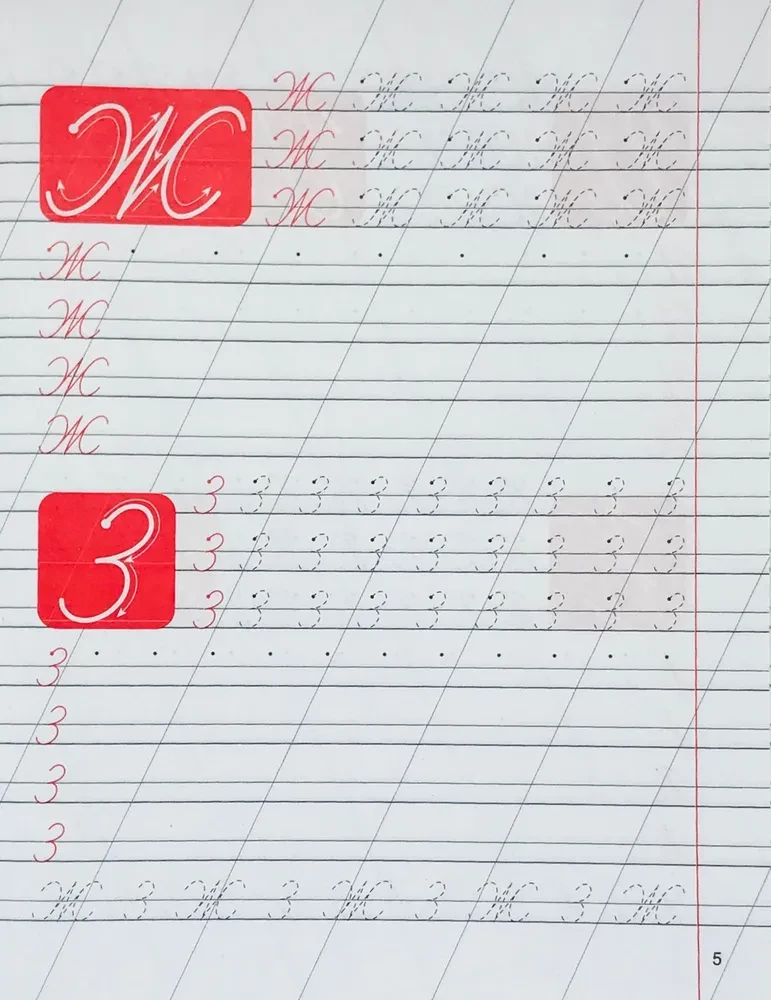 Ж Ж Ж Ж Ж Ж
Ж Ж Ж Ж Ж
Ж Ж Ж Ж Ж
Ж
Ж
Ж
Ж
З З З З З З З З З З
З З З З З З З З З
З З З З З З З З З
З
З
З
З
Ж З Ж З Ж З Ж З Ж
5